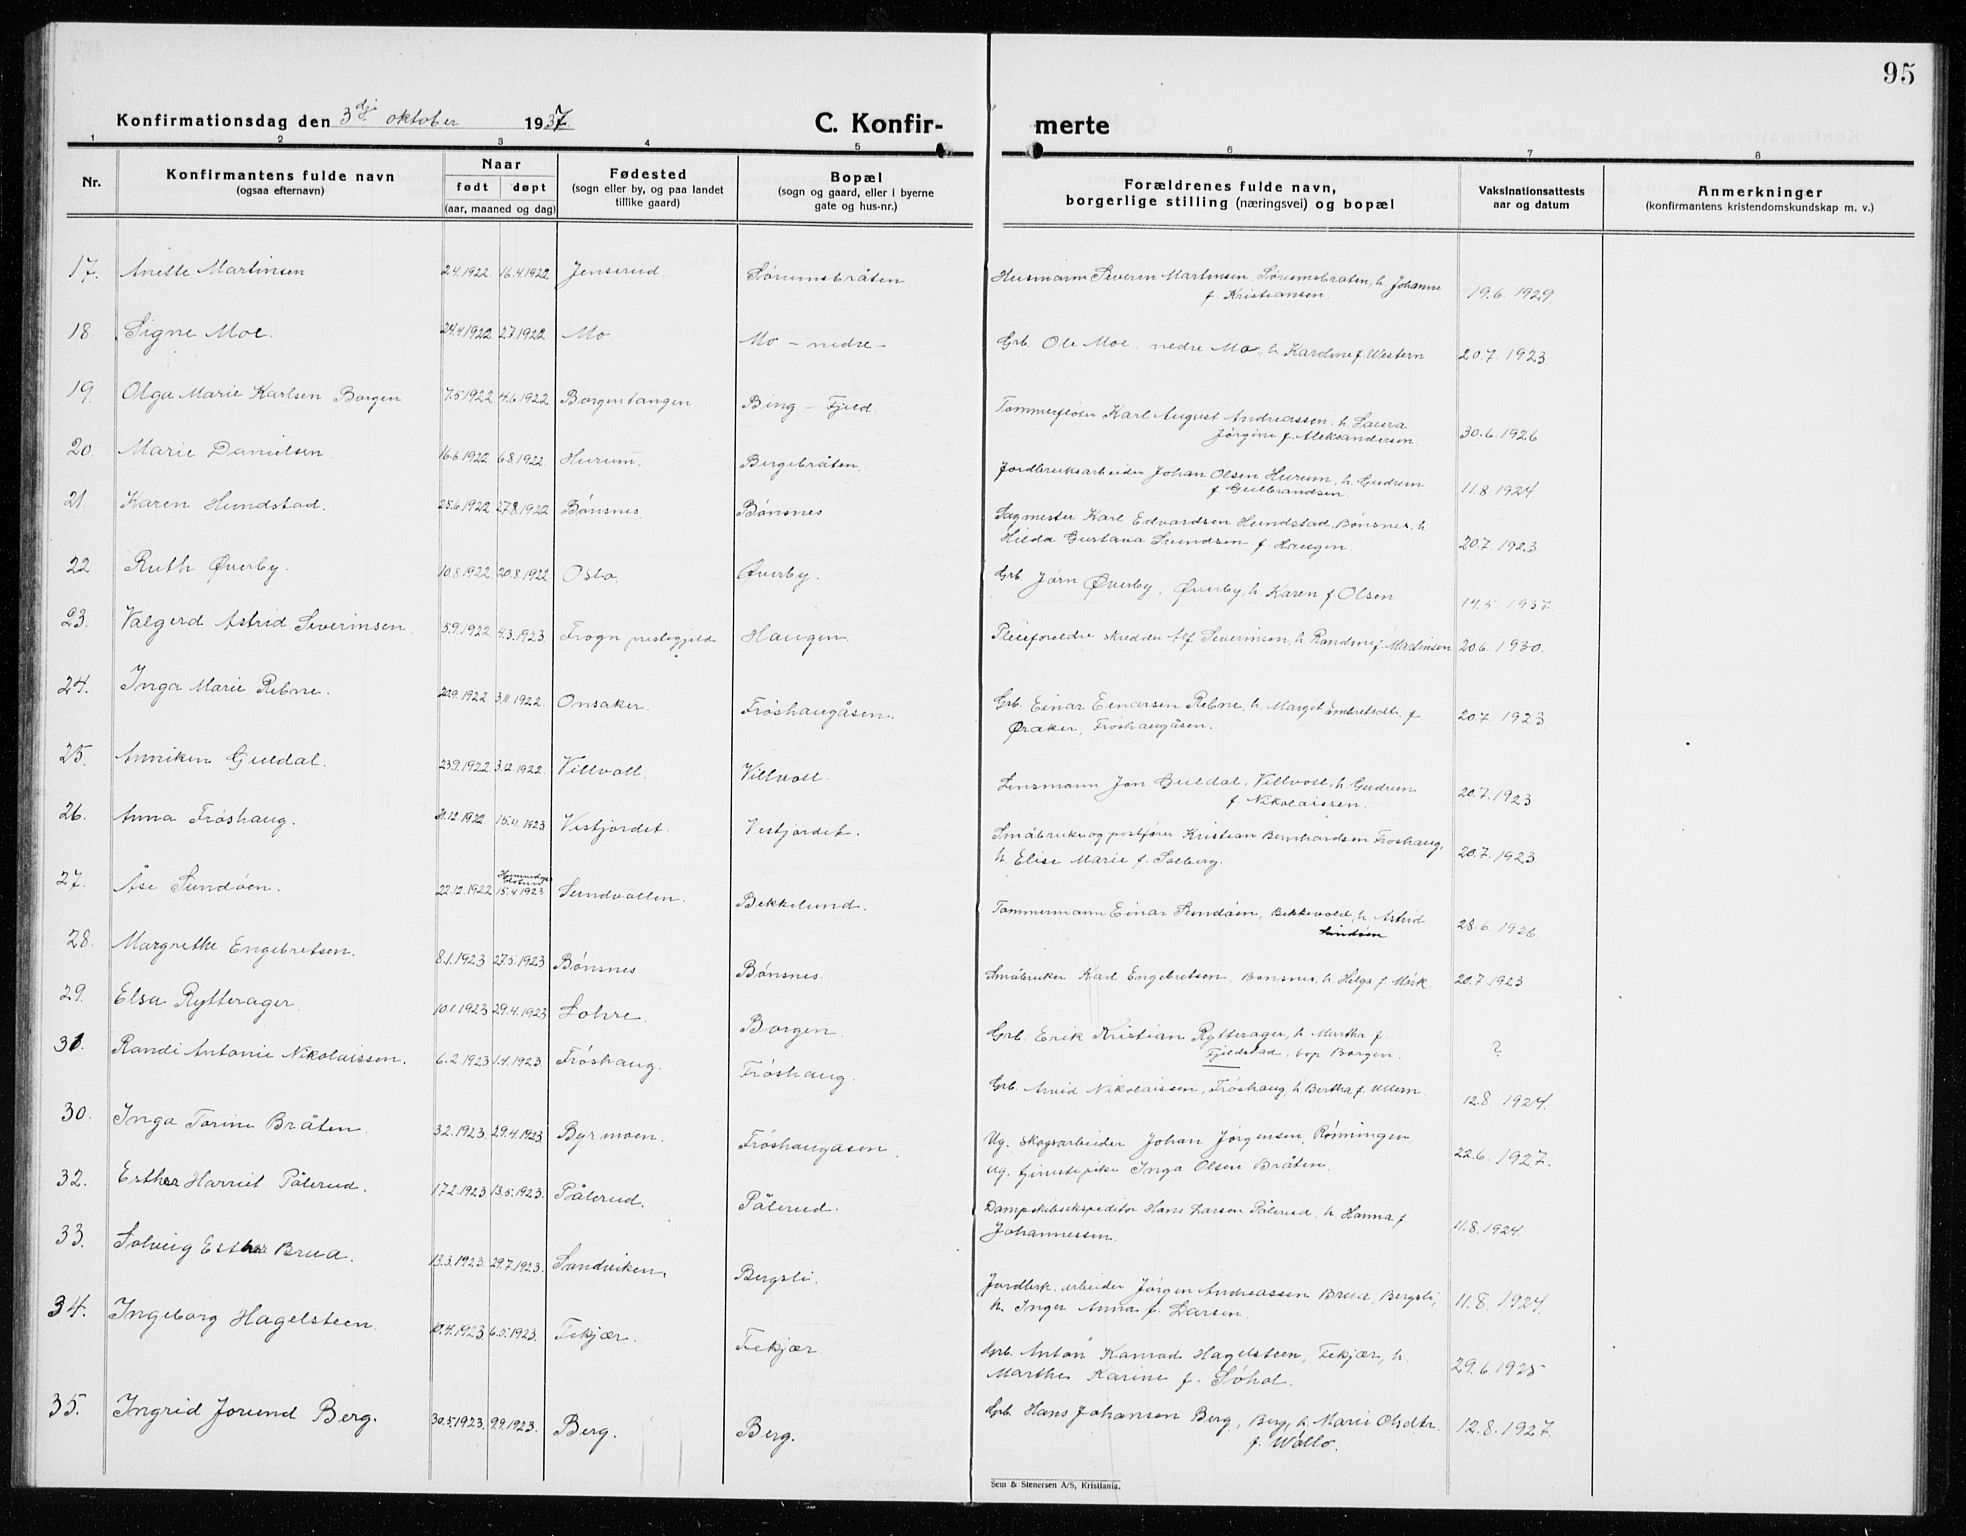 95
Konfirmationsdag den 3dje oktober 1937.
C. Konfir- merte
1 2 3 4 5 6 7 8
Nr.
Konfirmantens fulde navn
(ogsaa efternavn)
Naar
født døpt
(aar, maaned og dag)
Fødested
(sogn eller by, og paa landet
tillike gaard)
Bopæl
(sogn og gaard, eller i byerne
gate og hus-nr.)
Forældrenes fulde navn,
borgerlige stilling (næringsvei) og bopæl
Vaksinationsattests
aar og datum
Anmerkninger
(konfirmantens kristendomskundskap m. v.)
17. Anette Martinsen 2.4.1922 16.4.1922 Jenserud Sørumsbråten Husmann Severin Martinsen, Sørumsbråten, h. Johanne
f. Kristiansen. 19.6.1929
18. Signe Moe. 24.4.1922 2.7.1922 Mo Mo - nedre - Grb. Ole Moe, nedre Mo, h. Kardine f. Western. 20.7.1923
19. Olga Marie Karlsen Borgen 7.5.1922 4.6.1922 Borgentangen Bing - Fjeld. Tømmerfløter Karl August Andreassen, h. Laura
Jørgine f. Aleksandersen 30.6.1926
20. Marie Danielsen 16.6.1922 6.8.1922 Hurum. Bergebråten. Jordbruksarbeider Johan Olsen Hurum, h. Gudrun
f. Gulbrandsen. 11.8.1924
21. Karen Hundstad. 25.6.1922 27.8.1922 Bønsnes Bønsnes Sagmester Karl Edvardsen Hundstad, Bønsnes, h.
Hilda Gustava Svendsen f. Haugen. 20.7.1923
22. Ruth Øverby. 10.8.1922 20.8.1922 Oslo Øverby. Grb. Jørn Øverby, Øverby, h. Karen f. Olsen 14.5.1937.
23. Valgerd Astrid Severinsen 5.9.1922 4.3.1923. Frogn prestegjeld Haugen. Pleieforeldre skredder Alf Severinsen, h. Randine f. Martinsen 20.6.1930.
24. Inga Marie Rebne. 20.9.1922 3.11.1922. Onsaker. Frøshaugåsen. Grb. Einar Einarsen Rebne, h. Margit Embretsdtr. f.
Øraker, Frøshaugåsen. 20.7.1923
25. Anniken Guldal. 23.9.1922 3.12.1922. Villvoll. Villvoll. Lensmann Jon Guldal, Villvoll, h. Gudrun
f. Nikolaissen. 20.7.1923
26. Anna Frøshaug. 21.12.1922. 15.4.1923 Vestjordet. Vestjordet. Småbruker og postfører Kristian Bernhardsen Frøshaug,
h. Elise Marie f. Solberg. 20.7.1923
27. Åse Sundøen. 22.12.1922 15.4.1923 Sundvollen. Bekkelund. Tømmermann Einar Sundøen, Bekkevold, h. Astrid
Sundøen 28.6.1926
28. Margrethe Engebretsen. 8.1.1923 27.5.1923 Bønsnes Bønsnes. Småbruker Karl Engebretsen, Bønsnes, h. Helga f. Mørk. 20.7.1923
29. Elsa Rytterager. 10.1.1923 29.4.1923 Lohre. Borgen. Grb. Erik Kristian Rytterager, h. Martha f.
Fjeldstad, bop Borgen. ?
31. Randi Antonie Nikolaissen. 6.2.1923 1.4.1923. Frøshaug. Frøshaug. Grb. Arvid Nikolaissen, Frøshaug, h. Bertha f. Ullern. 12.8.1924.
30. Inga Torine Bråten. 3.2.1923. 29.4.1923. Byrmoen. Frøshaugåsen. Ug. skogsarbeider Johan Jørgensen Rømmingen
ug. tjenestepike Inga Olsen Bråten. 22.6.1927.
32. Esther Harriet Pålerud. 17.2.1923. 13.5.1923. Pålerud. Pålerud. Dampskibsekspeditør Hans Larsen Pålerud, h. Hanna f.
Johannessen. 11.8.1924.
33. Solveig Esther Brua. 13.3.1923. 29.7.1923. Sandviken. Bergsli. Jordbrk. arbeider Jørgen Andreassen Brua, Bergsli,
h. Inger Anna f. Larsen. 11.8.1924.
34. Ingeborg Hagelsteen. 10.4.1923. 6.5.1923. Fekjær. Fekjær. Grb. Anton Konrad Hagelsteen, Fekjær, h.
Marthe Karine f. Søhol. 29.6.1925
35. Ingrid Jorund Berg. 30.5.1923. 9.9.1923. Berg. Berg. Grb. Hans Johansen Berg, Berg, h. Marie Olsdtr.
f. Wållo. 12.8.1927.
Sem & Stenersen A/S, Kristiania.